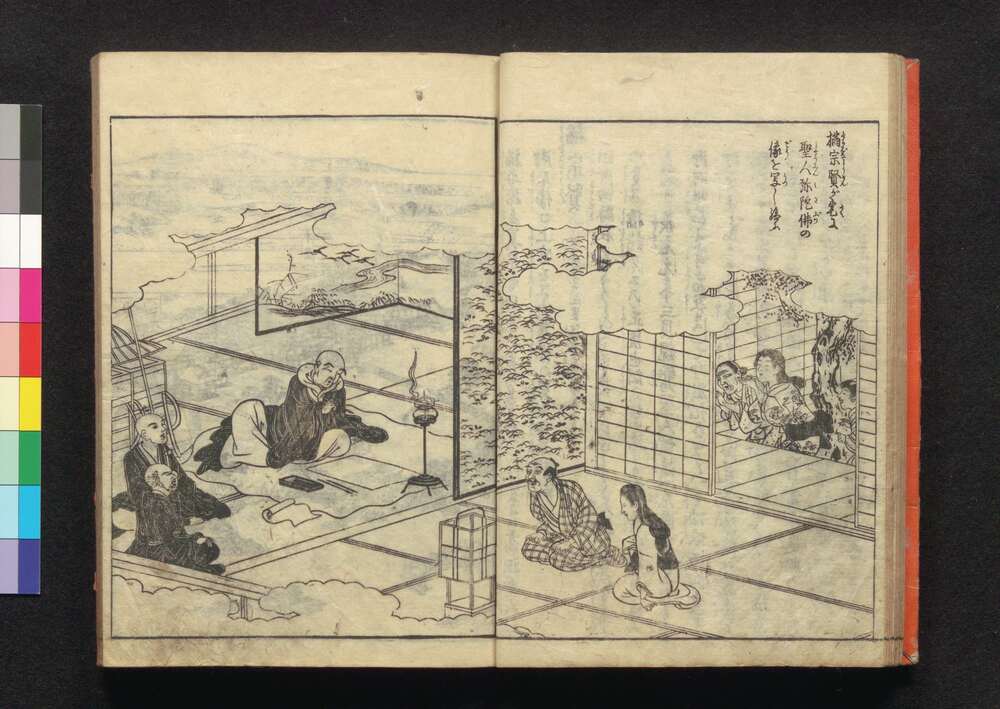 橘宗賢が宅に
聖人弥陀佛の
像を写し給ふ